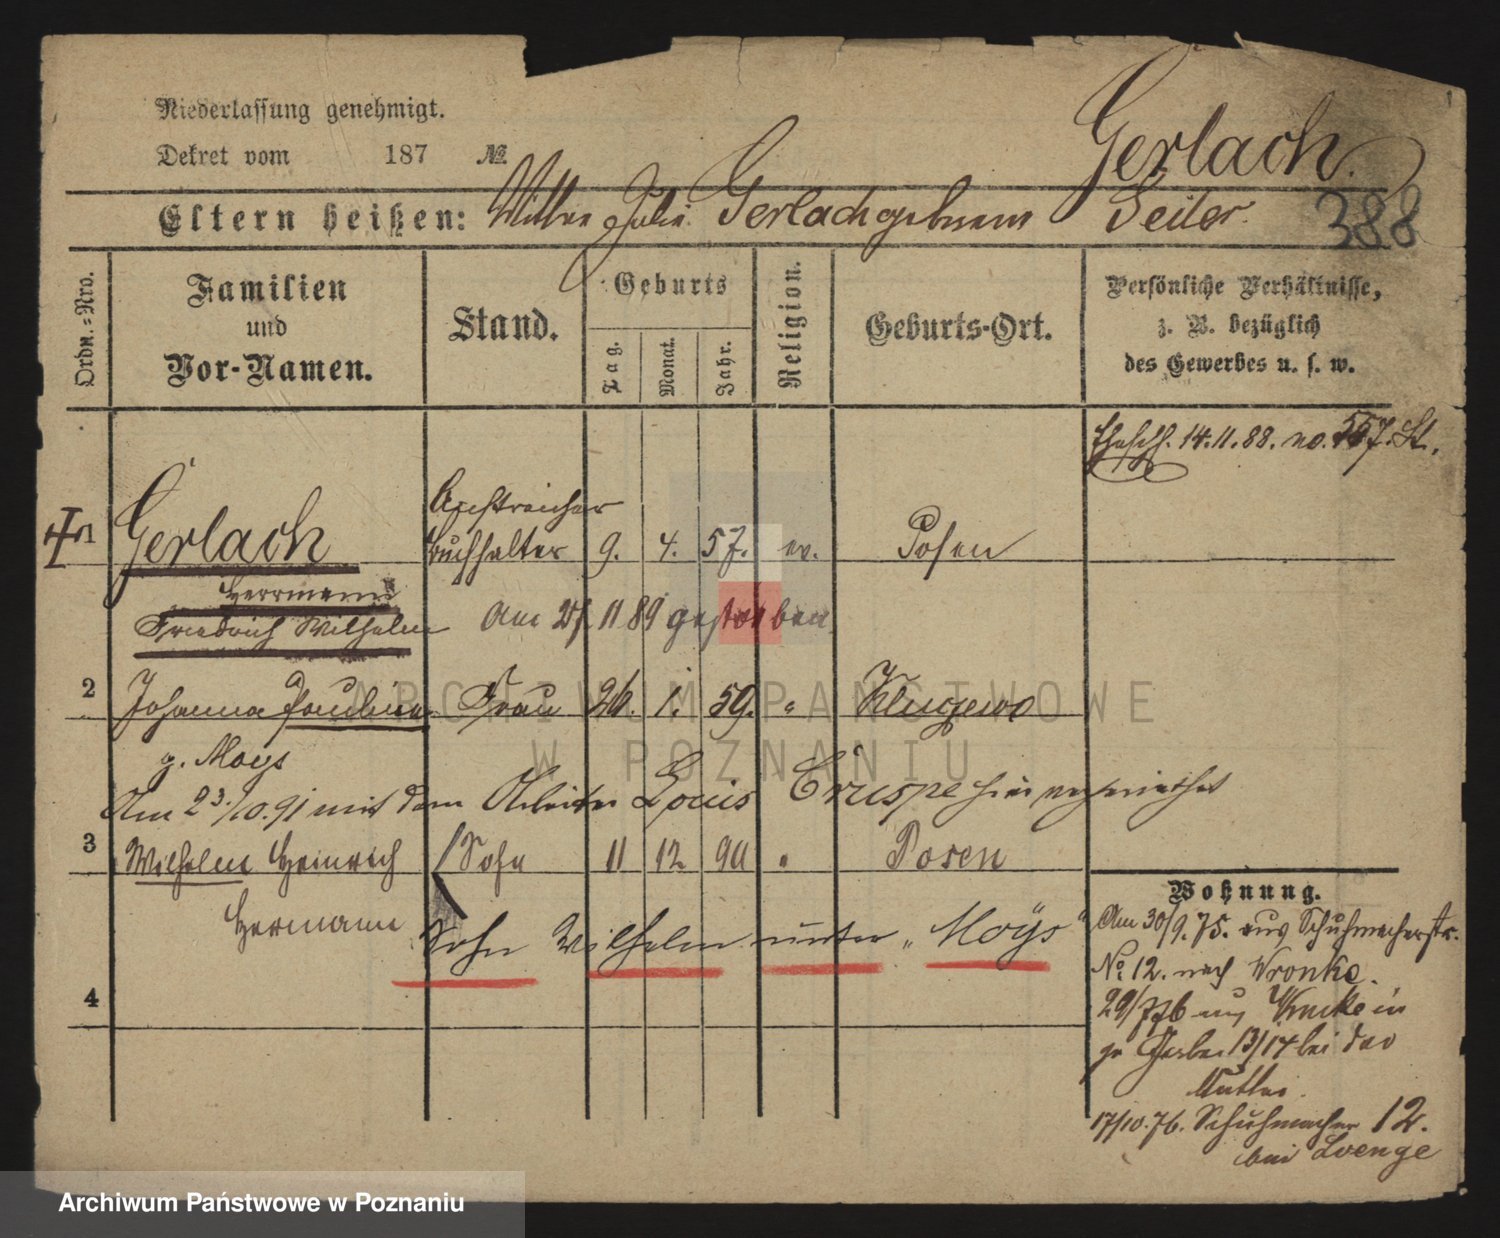 Niederlassung genehmigt.
Dekret vom 187 №
Gerlach.
Eltern heißen: Mutter Julie Gerlach geborene Seiler.
388
Ordn.=Nro.
Familien
und
Vor-Namen.
Stand.
Geburts
Tag.
Monat.
Jahr.
Religion.
Geburts-Ort.
Persönliche Verhältnisse,
z. B. bezüglich
des Gewerbes u. s. w.
Eheschl. 14.11.88. no. 557. St.
Anstreicher
1 Gerlach Buchhalter 9. 4. 57. ev. Posen
Herrmann
Friedrich Wilhelm
Am 25 11 89 gestorben
2 Johanna Pauline Frau 26. 1. 59. " Kluczewo
g. Moys
Am 23./10.91 mit dem Arbeiter Louis Cruspe hier verheirathet
3 Wilhelm Heinrich Sohn 11 12 90 " Posen
Hermann
Sohn Wilhelm unter "Moÿs"
4
Wohnung.
Am 30/9.75. aus Schuhmacherstr.
No 12. nach Wronke.
29/7 76 aus Wronke in
gr Gerber 13/14 bei der
Mutter.
17/10.76. Schuhmacher 12.
bei Loenge
ARCHIWUM PAŃSTWOWE
W POZNANIU
Archiwum Państwowe w Poznaniu